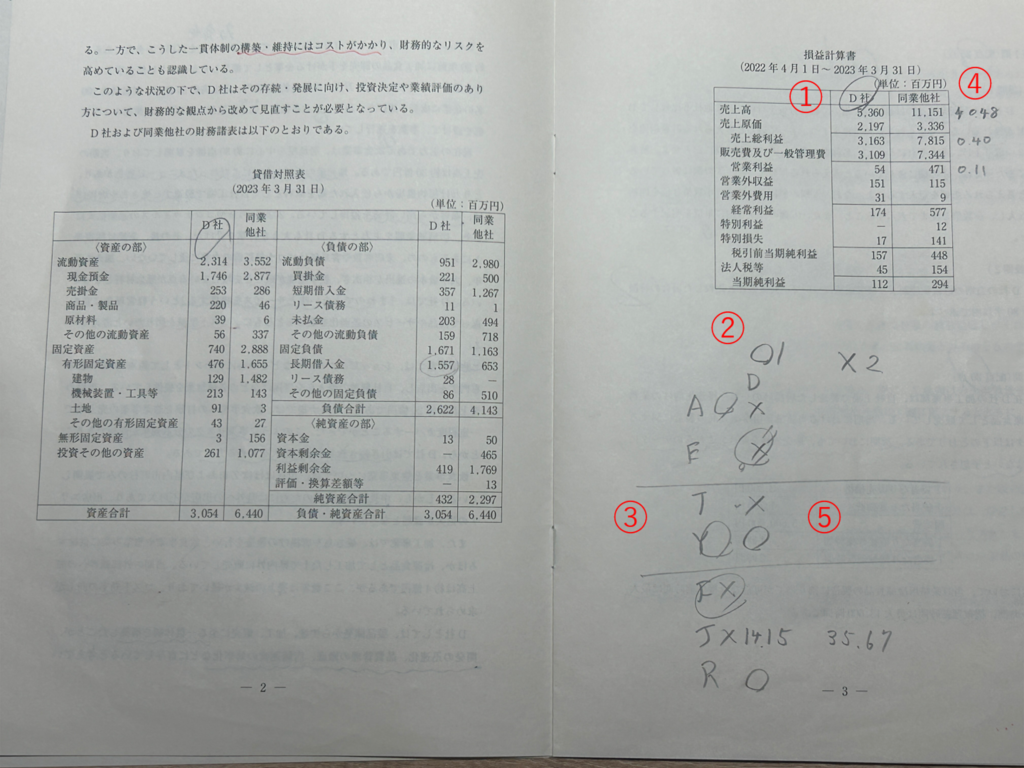 る。一方で、こうした一貫体制の構築・維持にはコストがかかり、財務的なリスクを
高めていることも認識している。
このような状況の下で、D社はその存続・発展に向け、投資決定や業績評価のあり
方について、財務的な観点から改めて見直すことが必要となっている。
D社および同業他社の財務諸表は以下のとおりである。
貸借対照表
(2023年3月31日)
(単位:百万円)
D社 同業他社 D社 同業他社
〈資産の部〉 〈負債の部〉
流動資産 2,314 3,552 流動負債 951 2,980
現金預金 1,746 2,877 買掛金 221 500
売掛金 253 286 短期借入金 357 1,267
商品・製品 220 46 リース債務 11 1
原材料 39 6 未払金 203 494
その他の流動資産 56 337 その他の流動負債 159 718
固定資産 740 2,888 固定負債 1,671 1,163
有形固定資産 476 1,655 長期借入金 1,557 653
建物 129 1,482 リース債務 28 —
機械装置・工具等 213 143 その他の固定負債 86 510
土地 91 3 負債合計 2,622 4,143
その他の有形固定資産 43 27 〈純資産の部〉
無形固定資産 3 156 資本金 13 50
投資その他の資産 261 1,077 資本剰余金 — 465
利益剰余金 419 1,769
評価・換算差額等 — 13
純資産合計 432 2,297
資産合計 3,054 6,440 負債・純資産合計 3,054 6,440
— 2 —
損益計算書
(2022年4月1日～2023年3月31日)
(単位:百万円)
① D社 同業他社 ④
売上高 5,360 11,151 0.48
売上原価 2,197 3,336
売上総利益 3,163 7,815 0.40
販売費及び一般管理費 3,109 7,344
営業利益 54 471 0.11
営業外収益 151 115
営業外費用 31 9
経常利益 174 577
特別利益 — 12
特別損失 17 141
税引前当期純利益 157 448
法人税等 45 154
当期純利益 112 294
②
○1 ×2
D
A ×
F ×
③ T × ⑤
Y ○
F×
J×14.15 35.67
R ○
— 3 —